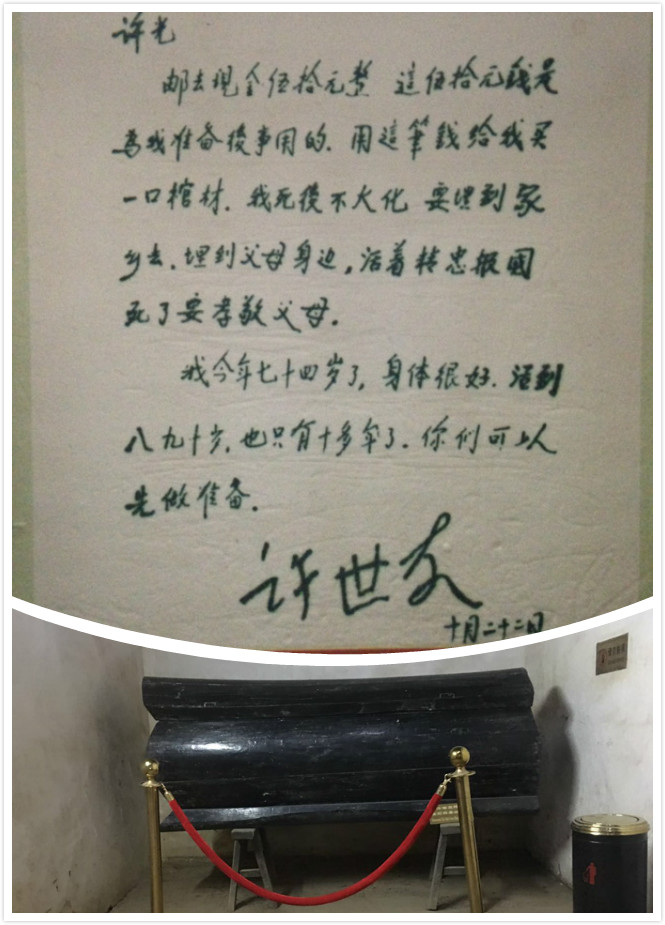 许光
邮去现金伍拾元整 這伍拾元錢是
為我准备後事用的. 用這筆錢给我买
一口棺材. 我死後不火化 要埋到家
乡去. 埋到父母身边, 活着转忠报國
死了要孝敬父母.
我今年七十四岁了, 身体很好. 活到
八九十岁. 也只有十多年了. 你们可以
先做准备.
许世友
十月二十二日